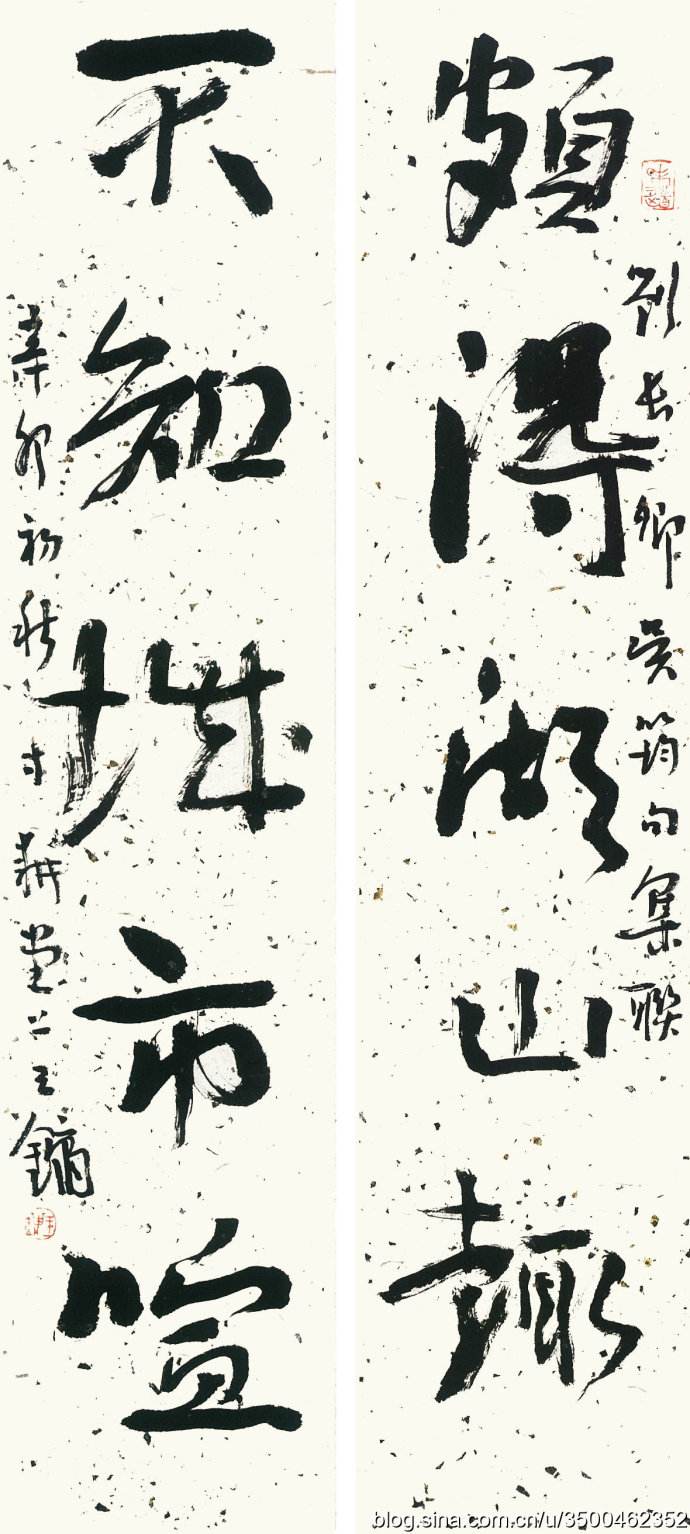 頗得湖山趣
劉長卿吳筠句集聯
不知城市喧
辛卯初秋寸耕堂上王鏞
blog.sina.com.cn/u/3500462352